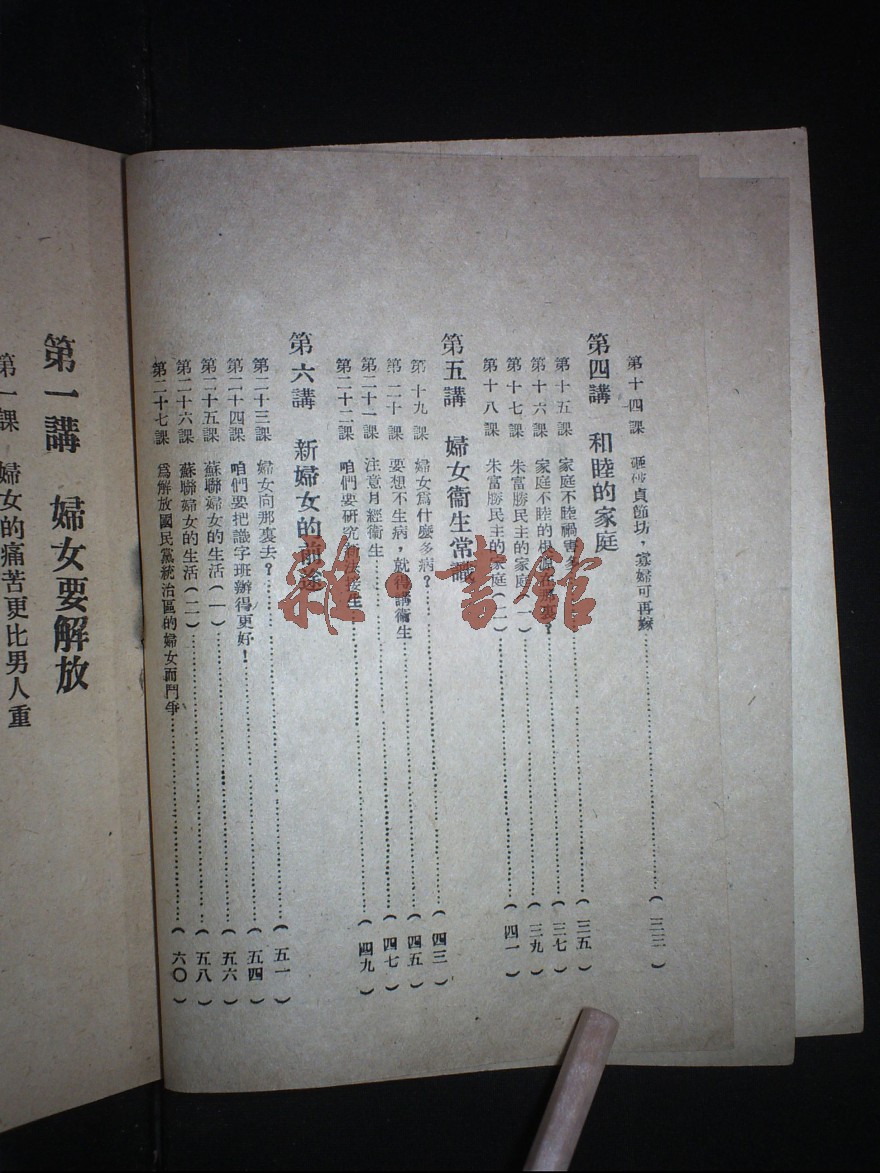 第十四課 砸碎貞節坊，寡婦可再嫁……（三三）
第四講 和睦的家庭
第十五課 家庭不睦禍害多……（三五）
第十六課 家庭不睦的根源在那裏？……（三七）
第十七課 朱富勝民主的家庭（一）……（三九）
第十八課 朱富勝民主的家庭（二）……（四一）
第五講 婦女衞生常識
第十九課 婦女爲什麼多病？……（四三）
第二十課 要想不生病，就得講衞生……（四五）
第二十一課 注意月經衞生……（四七）
第二十二課 咱們要研究新法接生……（四九）
第六講 新婦女的前途
第二十三課 婦女向那裏去？……（五一）
第二十四課 咱們要把識字班辦得更好！……（五四）
第二十五課 蘇聯婦女的生活（一）……（五六）
第二十六課 蘇聯婦女的生活（二）……（五八）
第二十七課 爲解放國民黨統治區的婦女而鬥爭……（六〇）
第一講 婦女要解放
第一課 婦女的痛苦更比男人重
雜·書館